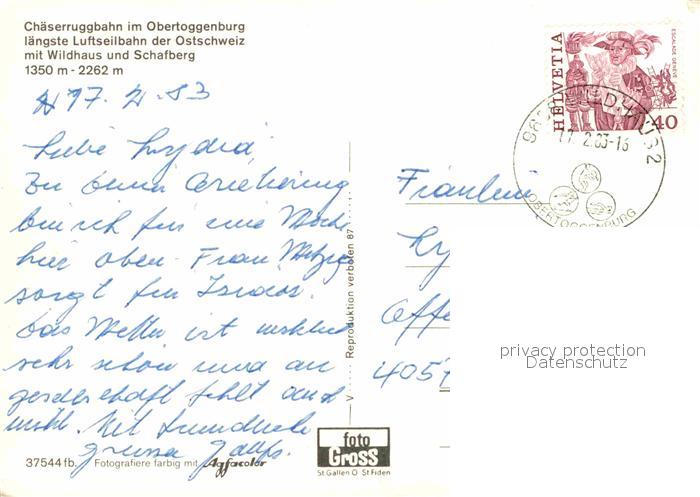 Chäserruggbahn im Obertoggenburg
längste Luftseilbahn der Ostschweiz
mit Wildhaus und Schafberg
1350 m - 2262 m
17. 2. 83
Liebe Lydia,
Zu deiner Orientierung
bin ich für eine Woche
hier oben. Frau Metzger
sorgt für
Das Wetter ist wirklich
sehr schön und an
gesellschaft fehlt auch
nicht. Mit freundlichen
grüssen
Fräulein
Ly
Offe
405
HELVETIA
ESCALADE GENÈVE
40
17. 2.83-16
OBERTOGGENBURG
Reproduktion verboten 87
V
privacy protection
Datenschutz
foto
Gross
St Gallen O St Fiden
37544 fb. Fotografiere farbig mit Agfacolor